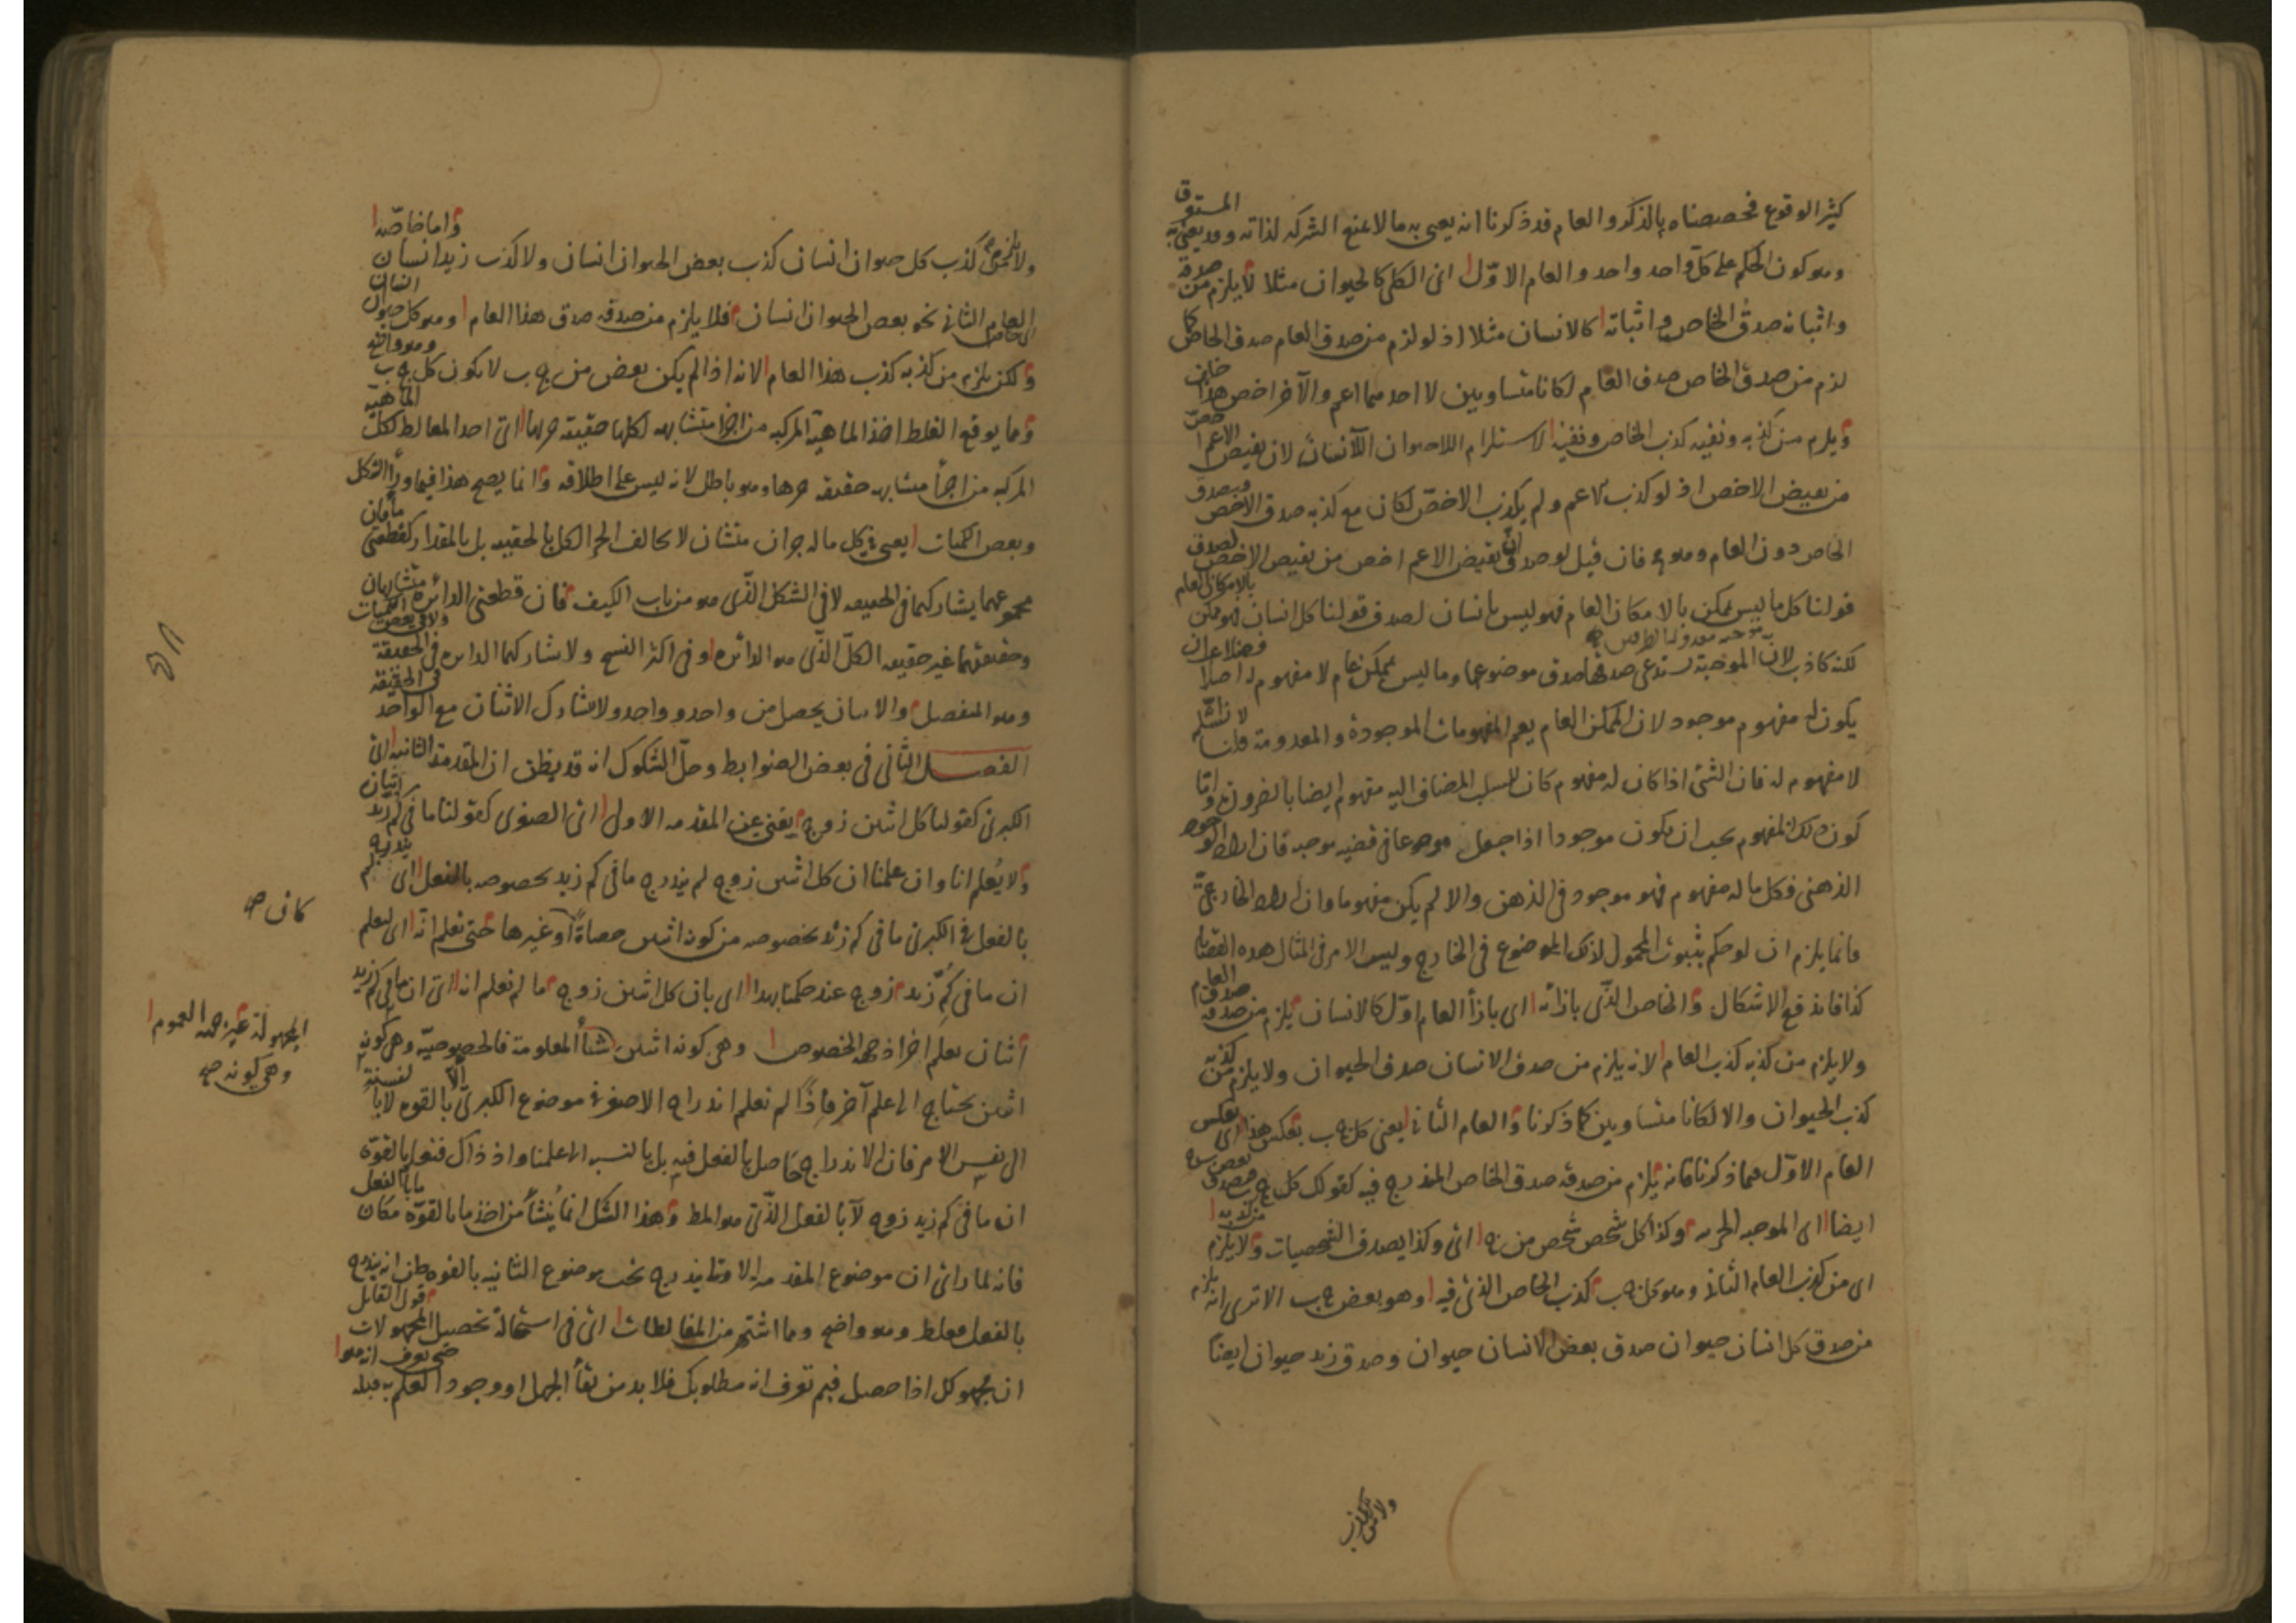 كثير الوقوع فخصصناه بالذكر والعام قد ذكرنا انه يعنى به ما لا يمنع الشركه لذاته وقد يعنى به المستغرق
وهو كون الحكم على كل واحد واحد والعام الاوّل اى الكلى كالحيوان مثلا لا يلزم من صدقه
واثباته صدق الخاص واثباته كالانسان مثلا اذ لو لزم من صدق العام صدق الخاص كما
لزم من صدق الخاص صدق العام لكانا متساويين لا احدهما اعم والآخر اخص هذا خلف
ويلزم من كذبه ونفيه كذب الخاص ونفيه لاستلزام اللاحيوان اللاانسان لان نقيض الاعم اخص
من نقيض الاخص اذ لو كذب الاعم ولم يكذب الاخصّ لكان مع كذبه صدق الاخص فيصدق
الخاص دون العام وهو فان قيل لو صدق ان نقيض الاعم اخص من نقيض الاخص لصدق
قولنا كل ما ليس بممكن بالامكان العام فهو ليس بانسان لصدق قولنا كل انسان فهو ممكن بالامكان العام
لكنه كاذب لان الموجبة تستدعى صدقها صدق موضوعها وما ليس بممكن عام لا مفهوم له اصلا فضلا عن ان
يكون له مفهوم موجود لان الممكن العام يعم المفهومات الموجودة والمعدومة قلنا لا نسلّم
لا مفهوم له فان الشئ اذا كان له مفهوم كان لسلب المضاف اليه مفهوم ايضا بالضرورة واما
كون ذلك المفهوم يجب ان يكون موجودا اذا جعل موضوعا فى قضيه موجبه فان اراد الوجود
الذهنى فكل ما له مفهوم فهو موجود فى الذهن والا لم يكن مفهوما وان اراد الخارجىّ
فانما يلزم ان لو حكم بثبوت المحمول لذلك الموضوع فى الخارج وليس الامر فى امثال هذه القضايا
كذا فاندفع الاشكال والخاص الذى بازائه اى بازاء العام اوّل كالانسان يلزم من صدقه صدق العام
ولا يلزم من كذبه كذب العام لانه يلزم من صدق الانسان صدق الحيوان ولا يلزم من كذبه
كذب الحيوان والا لكانا متساويين كما ذكرنا والعام الثانى يعنى كل ج ب بعكس هذا اى بعكس
العام الاوّل فيما ذكرنا فانه يلزم من صدقه صدق الخاص المندرج فيه كقولك كل ج ب فيصدق بعض ج ب
ايضا اى الموجبه الجزيه وكذا كل شخص شخص من ج اى وكذا يصدق الشخصيات ولا يلزم من كذبه
اى من كذب العام الثانى وهو كل ج ب كذب الخاص الذى فيه وهو بعض ج ب الا ترى انه يلزم
من صدق كل انسان حيوان صدق بعض الانسان حيوان وصدق زيد حيوان ايضا
ولا يلزم من كذب
ولا يلزم من كذب كل حيوان انسان كذب بعض الحيوان انسان ولا كذب زيد انسان واما خاصّ
العام الثانى نحو بعض الحيوان انسان فلا يلزم من صدقه صدق هذا العام وهو كل حيوان انسان
ولكن يلزم من كذبه كذب هذا العام لانه اذا لم يكن بعض من ج ب لا يكون كل ج ب وهو واضح
ومما يوقع الغلط اخذ الماهية المركبه من اجزاء متشابهه لكلها حقيقة جزئها اى احد المغالط لكل الماهية
المركبه من اجزاء متشابهه حقيقه جزها وهو باطل لانه ليس على اطلاقه وانما يصح هذا فيما وراء الشكل
وبعض الكميات يعنى كل ما له جزان متشابهان لا يخالف الجزء الكل بالحقيقه بل بالمقدار كقطعتى ماء فان
مجموعهما يشاركهما فى الحقيقه لا فى الشكل الذى هو من باب الكيف فان قطعتى الدائره متشابهتان
وحقيقتهما غير حقيقه الكلّ الذى هو الدائره وفى اكثر النسخ ولا يشاركهما الدائره فى الحقيقة ولا فى بعض الكميات
وهو المنفصل والاثنان يحصل من واحد وواحد ولا يشارك الاثنان مع الواحد فى الحقيقة
الفصل الثانى فى بعض الضوابط وحلّ الشكوك انه قد يظن ان المقدمة الثانيه اى
الكبرى كقولنا كل اثنين زوج يغنى عن المقدمه الاولى اى الصغرى كقولنا ما فى كم زيد اثنان
ولا يعلم انا وان علمنا ان كل اثنين زوج لم يندرج ما فى كم زيد بخصوصه بالفعل اى لم يندرج
بالفعل فى الكبرى ما فى كم زيد بخصوصه من كونه اثنين حصاة او غيرها حتى نعلم انه اى ليعلم
ان ما فى كُمّ زيد زوج عند حكمنا بهذا اى بان كل اثنين زوج ما لم نعلم انه اى ان ما فى كم زيد
اثنان بعلم آخر اذ جهة الخصوص وهى كونه اثنين شيئا المعلومة فالخصوصيّه وهى كونه
اثنين يحتاج الى علم آخر فاذًا لم نعلم اندراج الاصغر فى موضوع الكبرى بالقوه لا بالنسبة
الى نفس الامر فان الاندراج حاصل بالفعل فيه بل بالنسبه الى علمنا واذ ذاك فنعلم بالقوة
ان ما فى كم زيد زوج لا بالفعل الذى هو المط وهذا الشك انما يُنشأ من اخذ ما بالقوّة مكان ما بالفعل
فانه لما رأى ان موضوع المقدمه الاولى يندرج تحت موضوع الثانيه بالقوه ظن انه يندرج
بالفعل فغلط وهو واضح ومما اشتهر من المغالطات اى فى استحالة تحصيل المجهولات قول القائل
ان مجهولك اذا حصل فبم تعرف انه مطلوبك فلا بد من بقاء الجهل او وجود العلم به قبله حتى يعرف انه هو
كاف صح
المجهولة غير جهة العموم
وهى كونه صح